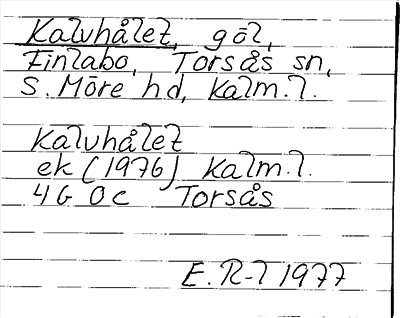 Kalvhålet, göl,
Finlabo, Torsås sn,
S. Möre hd, Kalm. l.
Kalvhålet
ek (1976) Kalm. l.
4G 0c Torsås
E. R-l 1977